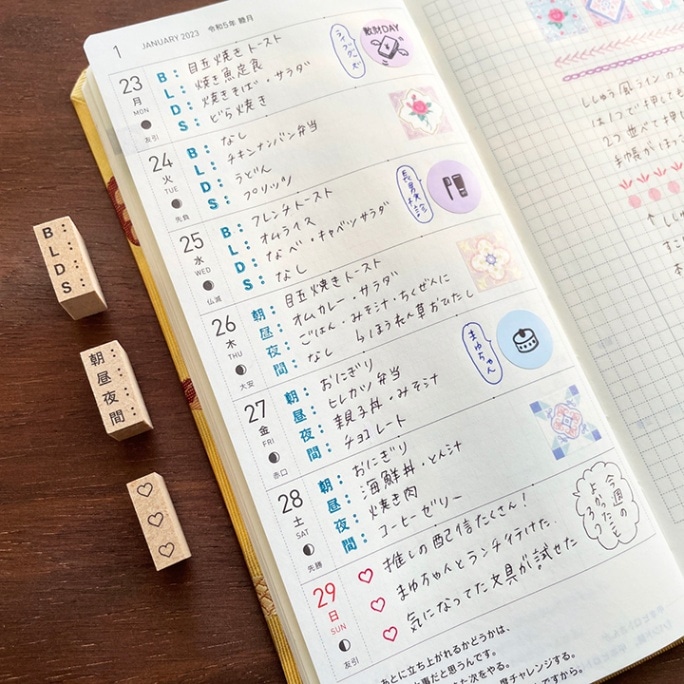 1 JANUARY 2023 令和5年 睦月
23 月 MON 友引
B: 目玉焼きトースト
L: 焼き魚定食
D: 焼きそば・サラダ
S: どら焼き
散財DAY
24 火 TUE 先負
B: なし
L: チキンナンバン弁当
D: うどん
S: プリッツ
25 水 WED 仏滅
B: フレンチトースト
L: オムライス
D: なべ・キャベツサラダ
S: なし
26 木 THU 大安
朝: 目玉焼きトースト
昼: オムカレー・サラダ
夜: ごはん・みそ汁・ちくぜんに
間: なし ↳ほうれん草おひたし
まゆちゃん
27 金 FRI 赤口
朝: おにぎり
昼: ヒレカツ弁当
夜: 親子丼・みそ汁
間: チョコレート
28 土 SAT 先勝
朝: おにぎり
昼: 海鮮丼・とん汁
夜: 焼き肉
間: コーヒーゼリー
29 日 SUN 友引
♡ 推しの配信たくさん!
♡ まゆちゃんとランチ行けた
♡ 気になってた文具が試せた
今週の
よかったこと
3つ
あとに立ち上がれるかどうかは、
事だと思うんです。
また次をやる。
度チャレンジする。
ですから。
B:
L:
D:
S:
朝:
昼:
夜:
間:
ししゅう風ラインのス
は1つで押しても
2つ並べて押し
手帳がほ